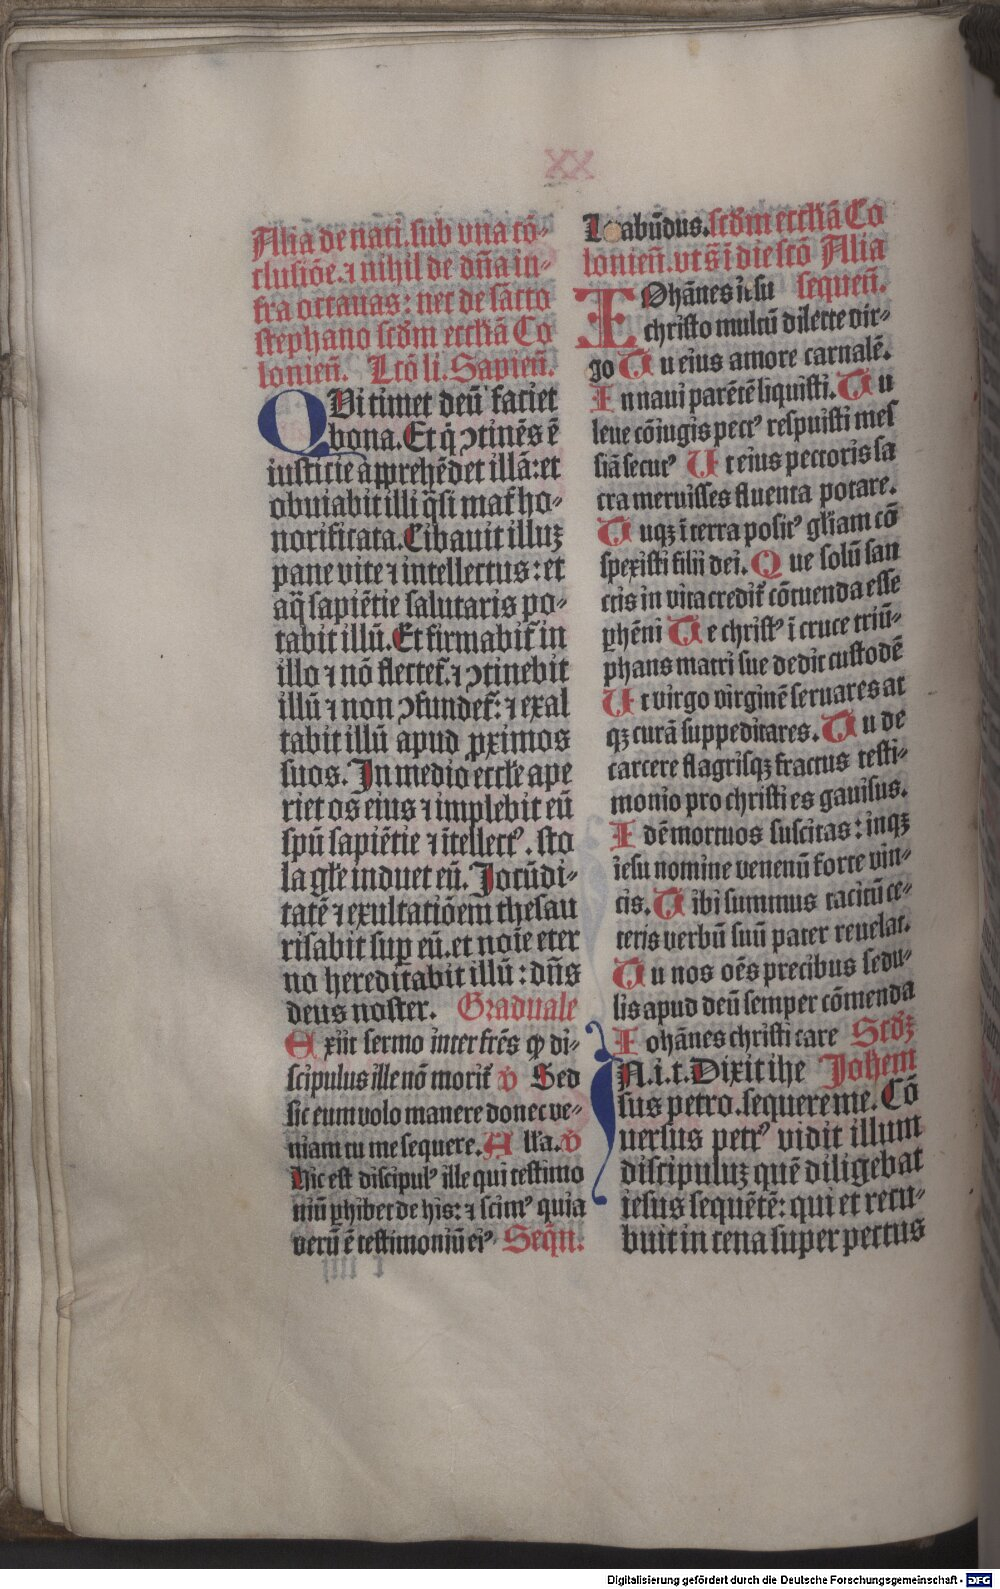 XX
Alia de nati. sub vna cō-
clusiōe. ⁊ nihil de dña in-
fra octauas: nec de sācto
stephano scd̄m eccliā Co
lonieñ. Lcō li. Sapieñ.
QVi timet deū faciet
bona. Et q̇ ↄtinēs ē
iusticie apprehēdet illā: et
obuiabit illi q̄si mat̄ ho-
norificata. Cibauit illuꝫ
pane vite ⁊ intellectus: et
aq̄ sapiētie salutaris po-
tabit illū. Et firmabit̄ in
illo ⁊ nō flectet̄. ⁊ ↄtinebit
illū ⁊ non ↄfundet̄: ⁊ exal
tabit illū apud ꝓximos
suos. In medio eccl̄e ape
riet os eius ⁊ implebit eū
spū sapiētie ⁊ ītellectꝰ. sto
la gl̄e induet eū. Jocūdi-
tatē ⁊ exultatiōem thesau
risabit suꝑ eū. et noīe eter
no hereditabit illū: dn̄s
deus noster. Graduale
Exiit sermo inter fr̄es ꝙ di-
scipulus ille nō morit̄ v̄ Sed
sic eum volo manere donec ve-
niam tu me sequere. All'a. v̄
Hic est discipulꝰ ille qui testimo
niū ꝑhibet de his: ⁊ scimꝰ quia
verū ē testimoniū eiꝰ Seq̄n.
Letabūdus. scd̄m eccliā Co
lonieñ. vt s̄ i die scō Alia
IOhānes iesu sequeñ.
christo multū dilecte vir-
go Tu eius amore carnalē.
In naui parētē liquisti. Tu
leue cōiugis pectꝰ respuisti mes
siā secutꝰ Ut eius pectoris sa
cra meruisses fluenta potare.
Tuqꝫ ī terra positꝰ gl̄iam cō
spexisti filij dei. Que solū san
ctis in vita credit̄ cōtuenda esse
ꝑhēni Te christꝰ ī cruce triū-
phans matri sue dedit custodē
Ut virgo virginē seruares at
qꝫ curā suppeditares. Tu de
carcere flagrisqꝫ fractus testi-
monio pro christi es gauisus.
Idē mortuos suscitas: inqꝫ
iesu nomine venenū forte vin-
cis. Tibi summus tacitū ce-
teris verbū suū pater reuelat.
Tu nos oēs precibus sedu-
lis apud deū semper cōmenda
Iohānes christi care Scd̄ꝫ
IN. i. t. Dixit ihe Johem
sus petro. sequere me. Cō
uersus petrꝰ vidit illum
discipuluꝫ quē diligebat
iesus sequētē: qui et recu-
buit in cena super pectus
Digitalisierung gefördert durch die Deutsche Forschungsgemeinschaft - DFG